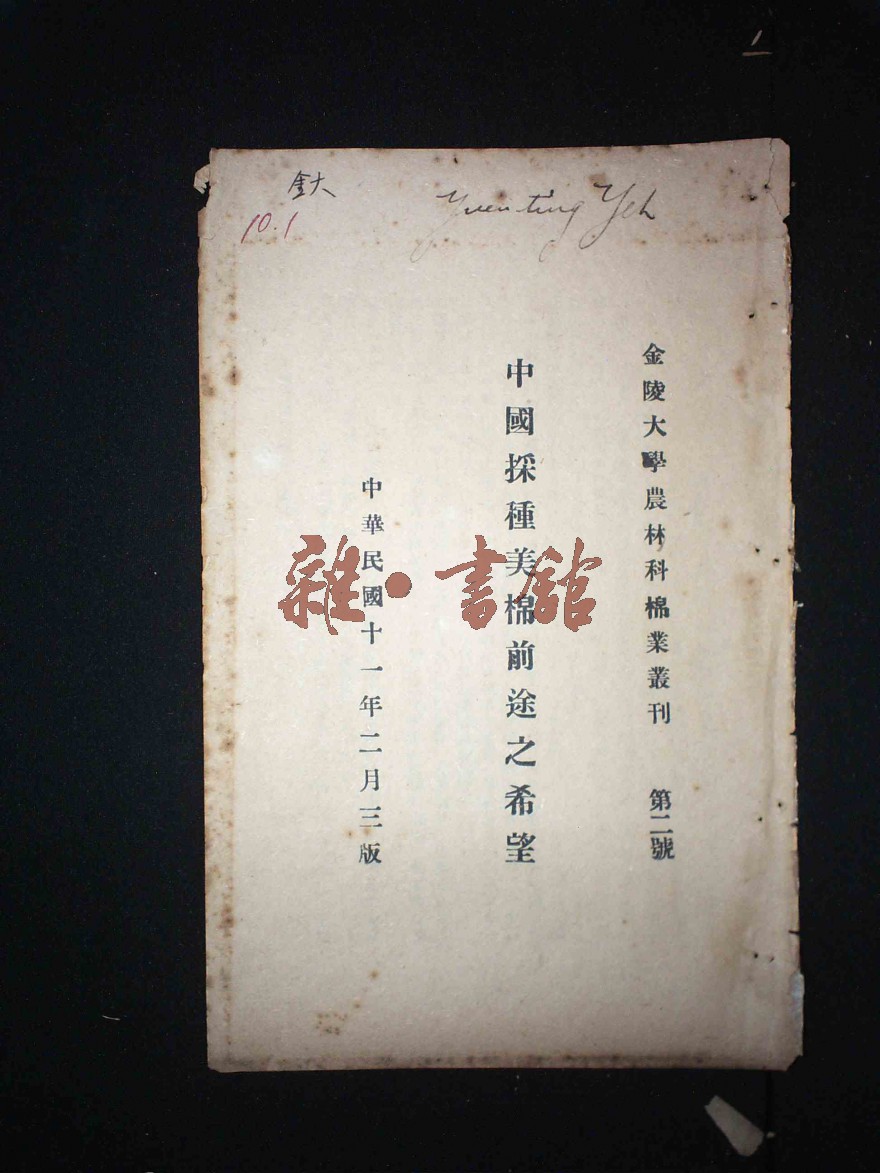 金大
10.1
Yuen ting Yeh
金陵大學農林科棉業叢刊 第二號
中國採種美棉前途之希望
中華民國十一年二月三版
雜·書館